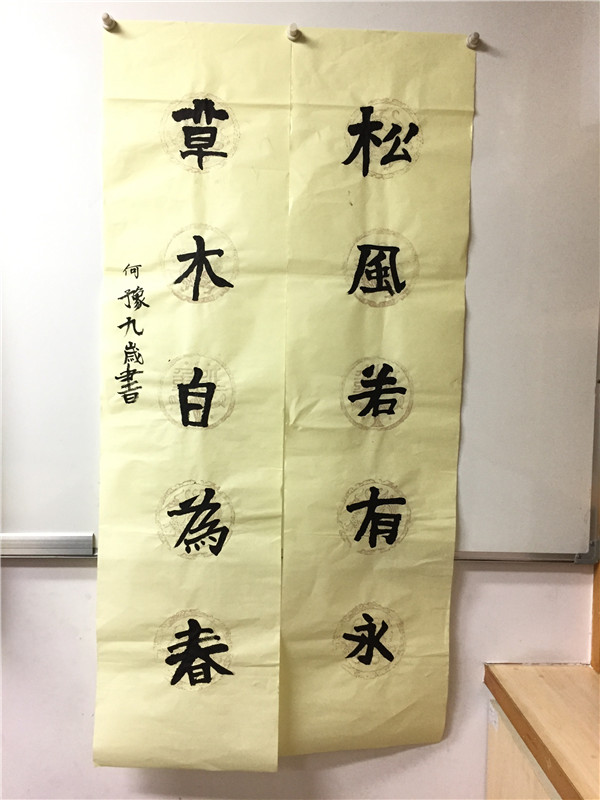 松風若有永
草木自為春
何豫九歲書